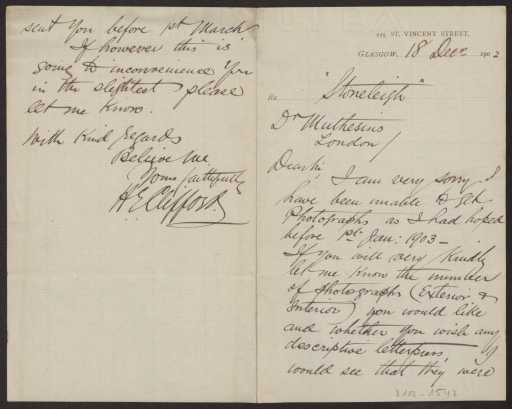 225 ST. VINCENT STREET,
GLASGOW, 18 Decr 1902
Re "Stoneleigh"
Dr Muthesius
London /
Dear Sir,
I am very sorry I
have been unable to get
Photographs as I had hoped
before 1st Jan: 1903 –
If you will very kindly
let me know the number
of photographs (Exterior &
Interior) you would like
and whether you wish any
descriptive letterpress, I
would see that they were
sent you before 1st March
If however this is
going to inconvenience you
in the slightest please
let me know.
With kind regards
Believe me
Yours faithfully
H E Clifford.